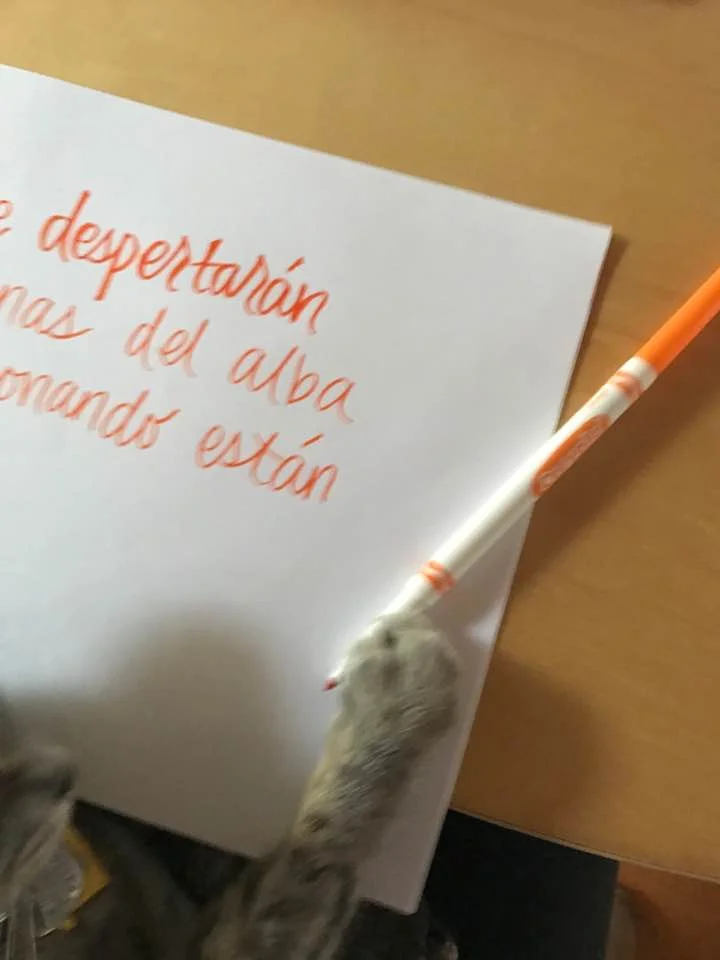 e despertarán
nas del alba
onando están